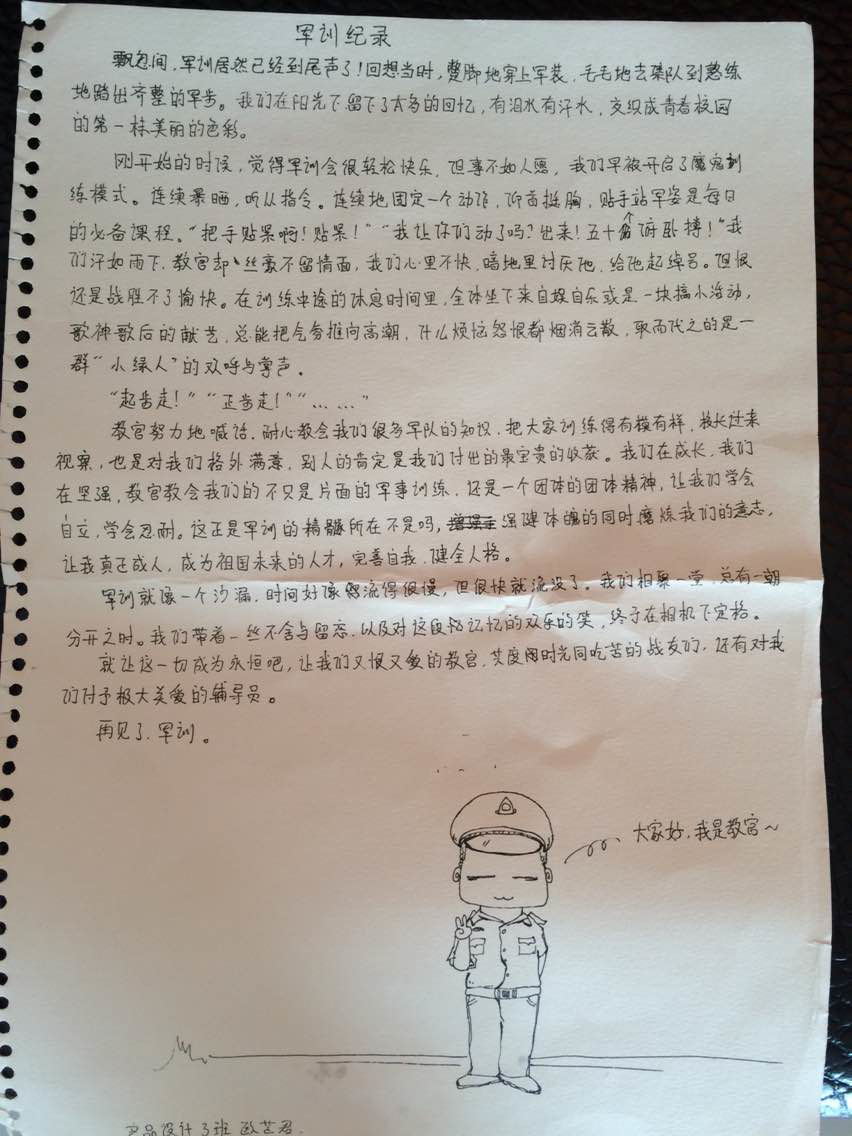 军训纪录
飘忽间,军训居然已经到尾声了!回想当时,蹩脚地穿上军装,毛毛地去集队到熟练
地踏出齐整的军步。我们在阳光下留下了太多的回忆,有泪水有汗水,交织成青春校园
的第一抹美丽的色彩。
刚开始的时候,觉得军训会很轻松快乐,但事不如人愿,我们早被开启了魔鬼训
练模式。连续暴晒,听从指令。连续地固定一个动作,仰首挺胸,贴手站军姿是每日
的必备课程。“把手贴紧啊!贴紧!”“我让你们动了吗?出来!五十个俯卧撑!”我
们汗如雨下,教官却丝毫不留情面,我们心里不快,暗地里讨厌他,给他起绰号。但恨
还是战胜不了愉快。在训练中途的休息时间里,全体坐下来自娱自乐或是一块搞小活动,
歌神歌后的献艺,总能把气氛推向高潮,什么烦恼怨恨都烟消云散,取而代之的是一
群“小绿人”的欢呼与掌声。
“起步走!”“正步走!”“……”
教官努力地喊话,耐心教会我们很多军队的知识,把大家训练得有模有样,校长过来
视察,也是对我们格外满意,别人的肯定是我们付出的最宝贵的收获。我们在成长,我们
在坚强,教官教会我们的不只是片面的军事训练,还是一个团体的团体精神,让我们学会
自立,学会忍耐。这正是军训的精髓所在不是吗,强健体魄的同时磨炼我们的意志,
让我真正成人,成为祖国未来的人才,完善自我,健全人格。
军训就像一个沙漏,时间好像流得很慢,但很快就流没了。我们相聚一堂,总有一朝
分开之时。我们带着一丝不舍与留恋,以及对这段记忆的欢乐的笑,终于在相机下定格。
就让这一切成为永恒吧,让我们又恨又爱的教官,共度时光同吃苦的战友们,还有对我
们付予极大关爱的辅导员。
再见了,军训。
大家好,我是教官~
产品设计3班 欧芷君